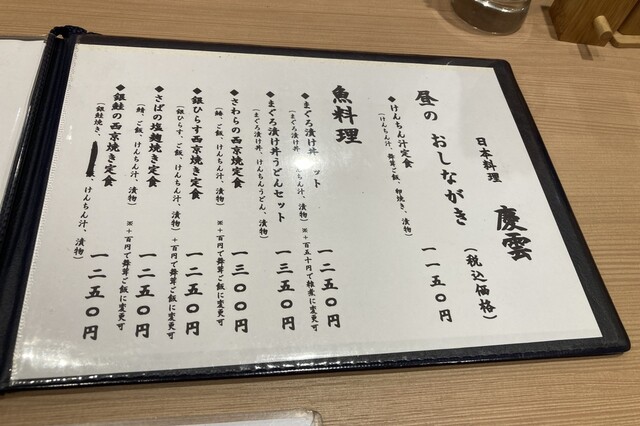 日本料理 慶雲
昼の おしながき (税込価格)
◆けんちん汁定食 一一五〇円
(けんちん汁、舞茸ご飯、卵焼き、漬物)
魚料理
◆まぐろ漬け丼 ット 一二五〇円
(まぐろ漬け丼、 んちん汁、漬物) ※+百五十円で雑煮に変更可
◆まぐろ漬け丼うどんセット 一三五〇円
(まぐろ漬け丼、けんちんうどん、漬物)
◆さわらの西京焼定食 一三〇〇円
(鰆、ご飯、けんちん汁、漬物) ※+百円で舞茸ご飯に変更可
◆銀ひらす西京焼き定食 一二五〇円
(銀ひらす、ご飯、けんちん汁、漬物) +百円で舞茸ご飯に変更可
◆さばの塩麹焼き定食 一二五〇円
(鯖、ご飯、けんちん汁、漬物) ※+百円で舞茸ご飯に変更可
◆銀鮭の西京焼き定食 一二五〇円
(銀鮭焼き、 けんちん汁、漬物)